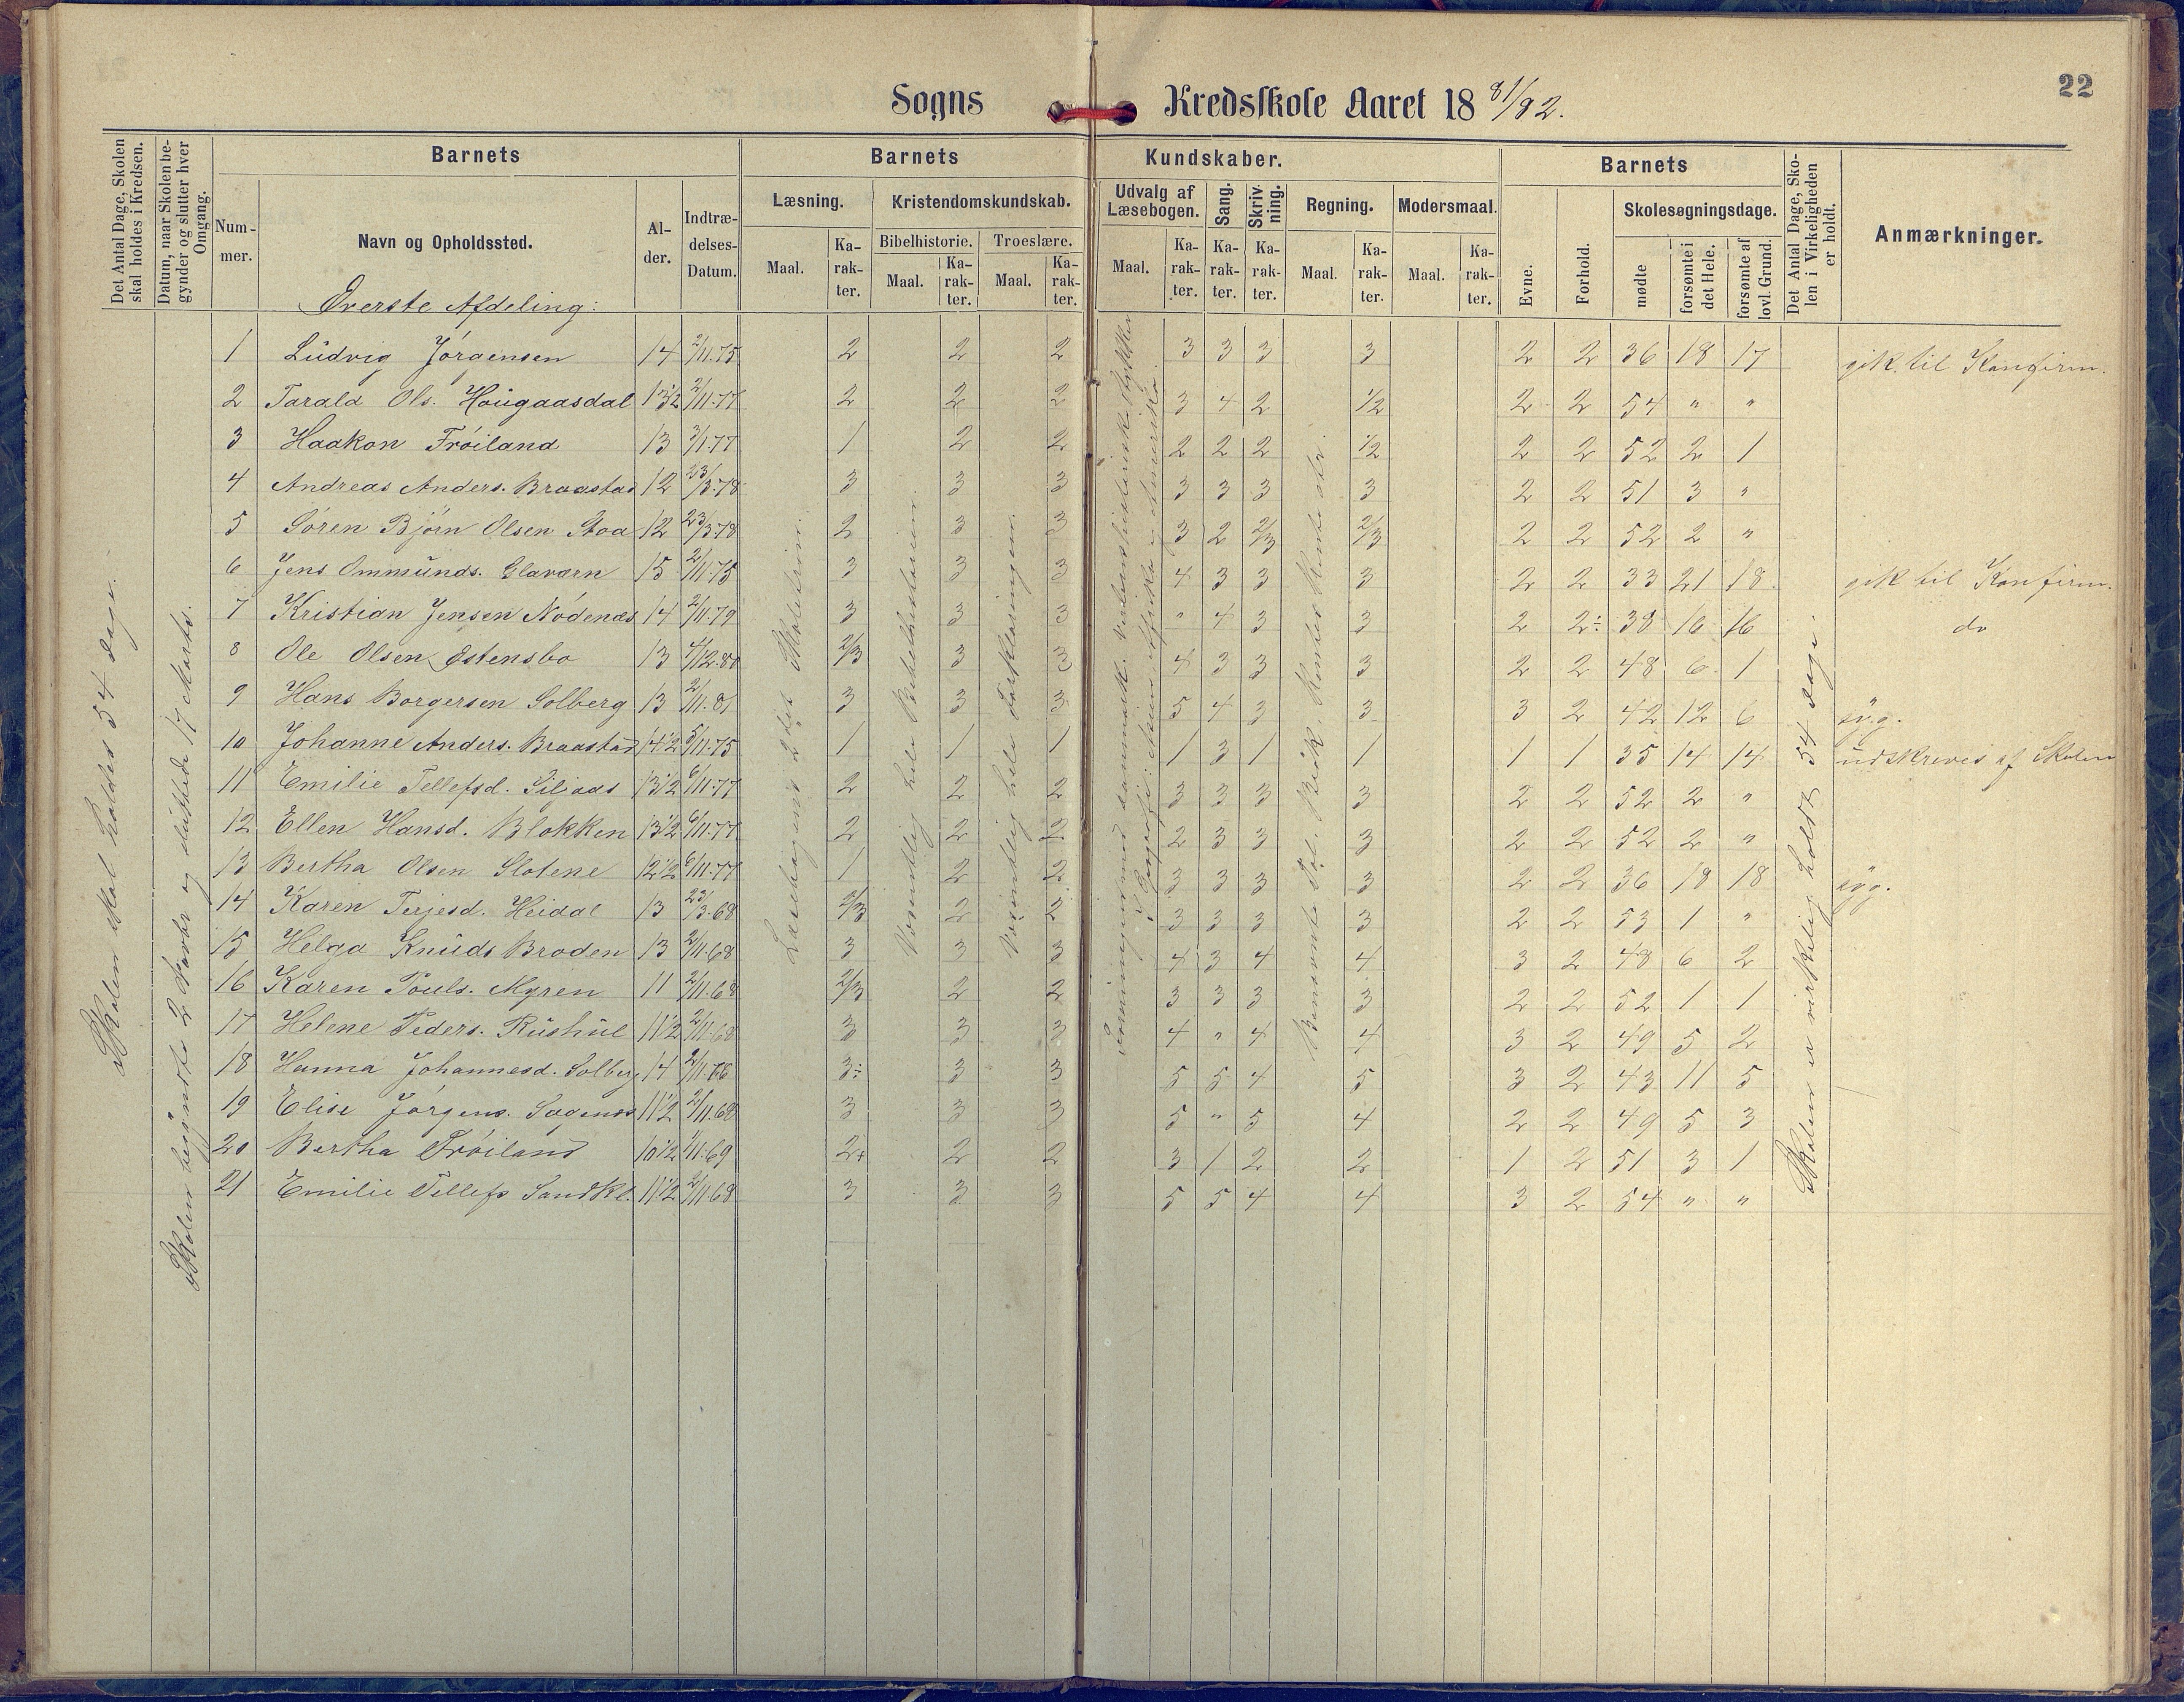 22
Sogns Kredsskole Aaret 18 81/82.
Det Antal Dage, Skolen skal holdes i Kredsen.
Datum, naar Skolen begynder og slutter hver Omgang.
Barnets
Nummer.
Navn og Opholdssted.
Alder.
Indtrædelses-Datum.
Barnets Kundskaber.
Læsning.
Maal. Karakter.
Kristendomskundskab.
Bibelhistorie. Troeslære.
Maal. Karakter. Maal. Karakter.
Udvalg af Læsebogen.
Maal. Karakter.
Sang. Karakter.
Skrivning. Karakter.
Regning.
Maal. Karakter.
Modersmaal.
Maal. Karakter.
Barnets
Evne. Forhold.
Skolesøgningsdage.
mødte forsømte i det Hele. forsømte af lovl. Grund.
Det Antal Dage, Skolen i Virkeligheden er holdt.
Anmærkninger.
Øverste Afdeling:
1 Ludvig Jørgensen 14 2/11.75 2 2 2 3 3 3 3 2 2 36 18 17 gik til Konfirm.
2 Tarald Ols. Hougaasdal 13 1/2 2/11.77 2 2 2 3 4 2 1/2 2 2 54 " "
3 Haakon Frøiland 13 3/1.77 1 2 2 2 2 2 1/2 2 2 52 2 1
4 Andreas Anders. Braastad 12 23/3.78 3 3 3 3 3 3 3 2 2 51 3 "
5 Søren Bjørn Olsen Stoa 12 23/3.78 2 3 3 3 2 2/3 2/3 2 2 52 2 "
6 Jens Ommunds. Glaværn 15 2/11.75 3 3 3 4 3 3 3 2 2 33 21 18 gik til Konfirm.
7 Kristian Jensen Nødenæs 14 2/11.79 3 3 3 " 4 3 3 2 2÷ 38 16 16 do
8 Ole Olsen Østensbo 13 4/12.80 2/3 3 3 4 3 3 3 2 2 48 6 1
9 Hans Borgersen Solberg 13 2/11.81 3 3 3 5 4 3 3 3 2 42 12 6 syg.
10 Johanne Anders. Braastad 14 1/2 5/11.75 1 1 1 1 3 1 1 1 1 35 14 14 udskreves af Skolen
11 Emilie Tellefsd. Siljaas 13 1/2 6/11.77 2 2 2 3 3 3 3 2 2 52 2 "
12 Ellen Hansd. Blokken 13 1/2 6/11.77 2 2 2 2 3 3 3 2 2 52 2 "
13 Bertha Olsen Slotene 12 1/2 6/11.77 1 2 2 3 3 3 3 2 2 36 18 18 syg.
14 Karen Terjesd. Heidal 13 23/3.68 2/3 2 2 3 3 3 3 2 2 53 1 "
15 Helga Knuds Broden 13 2/11.68 3 3 3 4 3 4 4 3 2 48 6 2
16 Karen Pouls. Myren 11 2/11.68 2/3 2 2 3 3 3 3 2 2 52 1 1
17 Helene Peders. Rushul 11 1/2 2/11.68 3 3 3 4 " 4 4 3 2 49 5 2
18 Hanna Johannesd. Solberg 14 2/11.66 3÷ 3 3 5 5 4 5 3 2 43 11 5
19 Elise Jørgens. Sagenes 11 1/2 2/11.68 3 3 3 5 " 5 4 2 2 49 5 3
20 Bertha Frøiland 10 1/2 1/11.69 2+ 2 2 3 1 2 2 1 2 51 3 1
21 Emilie Tellefs Sandkl. 11 1/2 2/11.68 3 3 3 5 5 4 4 3 2 54 " "
Skolen skal holdes 54 dage.
Skolen begyndte 2 og sluttede 17 Marts.
Læsebogens 2det Skoletrin.
Væsentlig hele Bibelhistorien.
Væsentlig hele Forklaringen.
Skolen er virkelig holdt 54 dage.